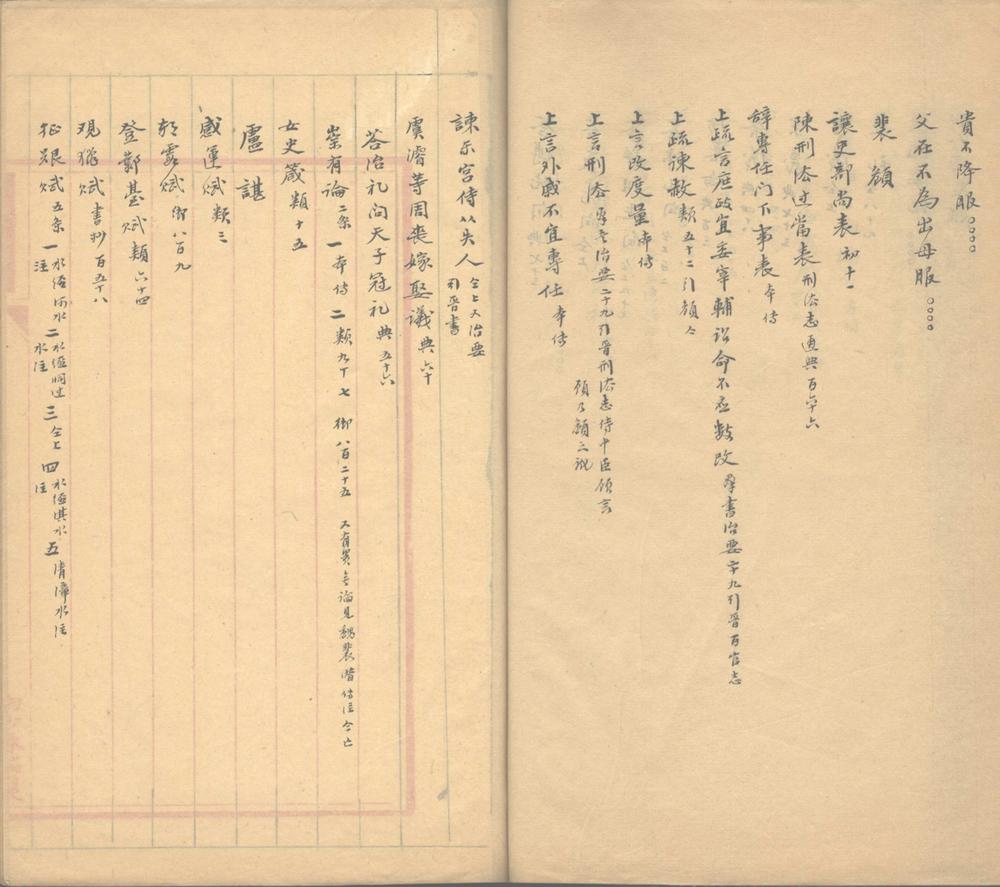 貴不降服。。。。
父在不為出母服。。。。
裴頠
讓吏部尚表 初十一
陳刑法过當表 刑法志 通典百六十六
辭專任门下事表 本傳
上疏言庶政宜委宰輔詔命不应數改 羣書治要 引晉百官志
上疏諫赦 類五十二引頠
上言改度量 本傳
上言刑法 治要二十九引晉刑法志侍中臣頠言
頠乃顗之訛
上言外戚不宜專任 本傳
諫东宮侍从失人 仝上又治要
引晉書
虞濬等周喪嫁娶議 典六十
答治礼问天子冠礼 典五十六
崇有論 二条 一本傳 二類九十七 御八百二十五 又有貴无論見魏裴潛傳注今亡
女史箴 類十五
盧諶
感運賦 類三
朝露賦 御八百九
登鄴臺賦 類六十四
观獵賦 書抄百五十八
征艱賦 五条 一 水经河水
注 二 水经洞过
水注 三 仝上 四 水经淇水
注 五 清漳水注